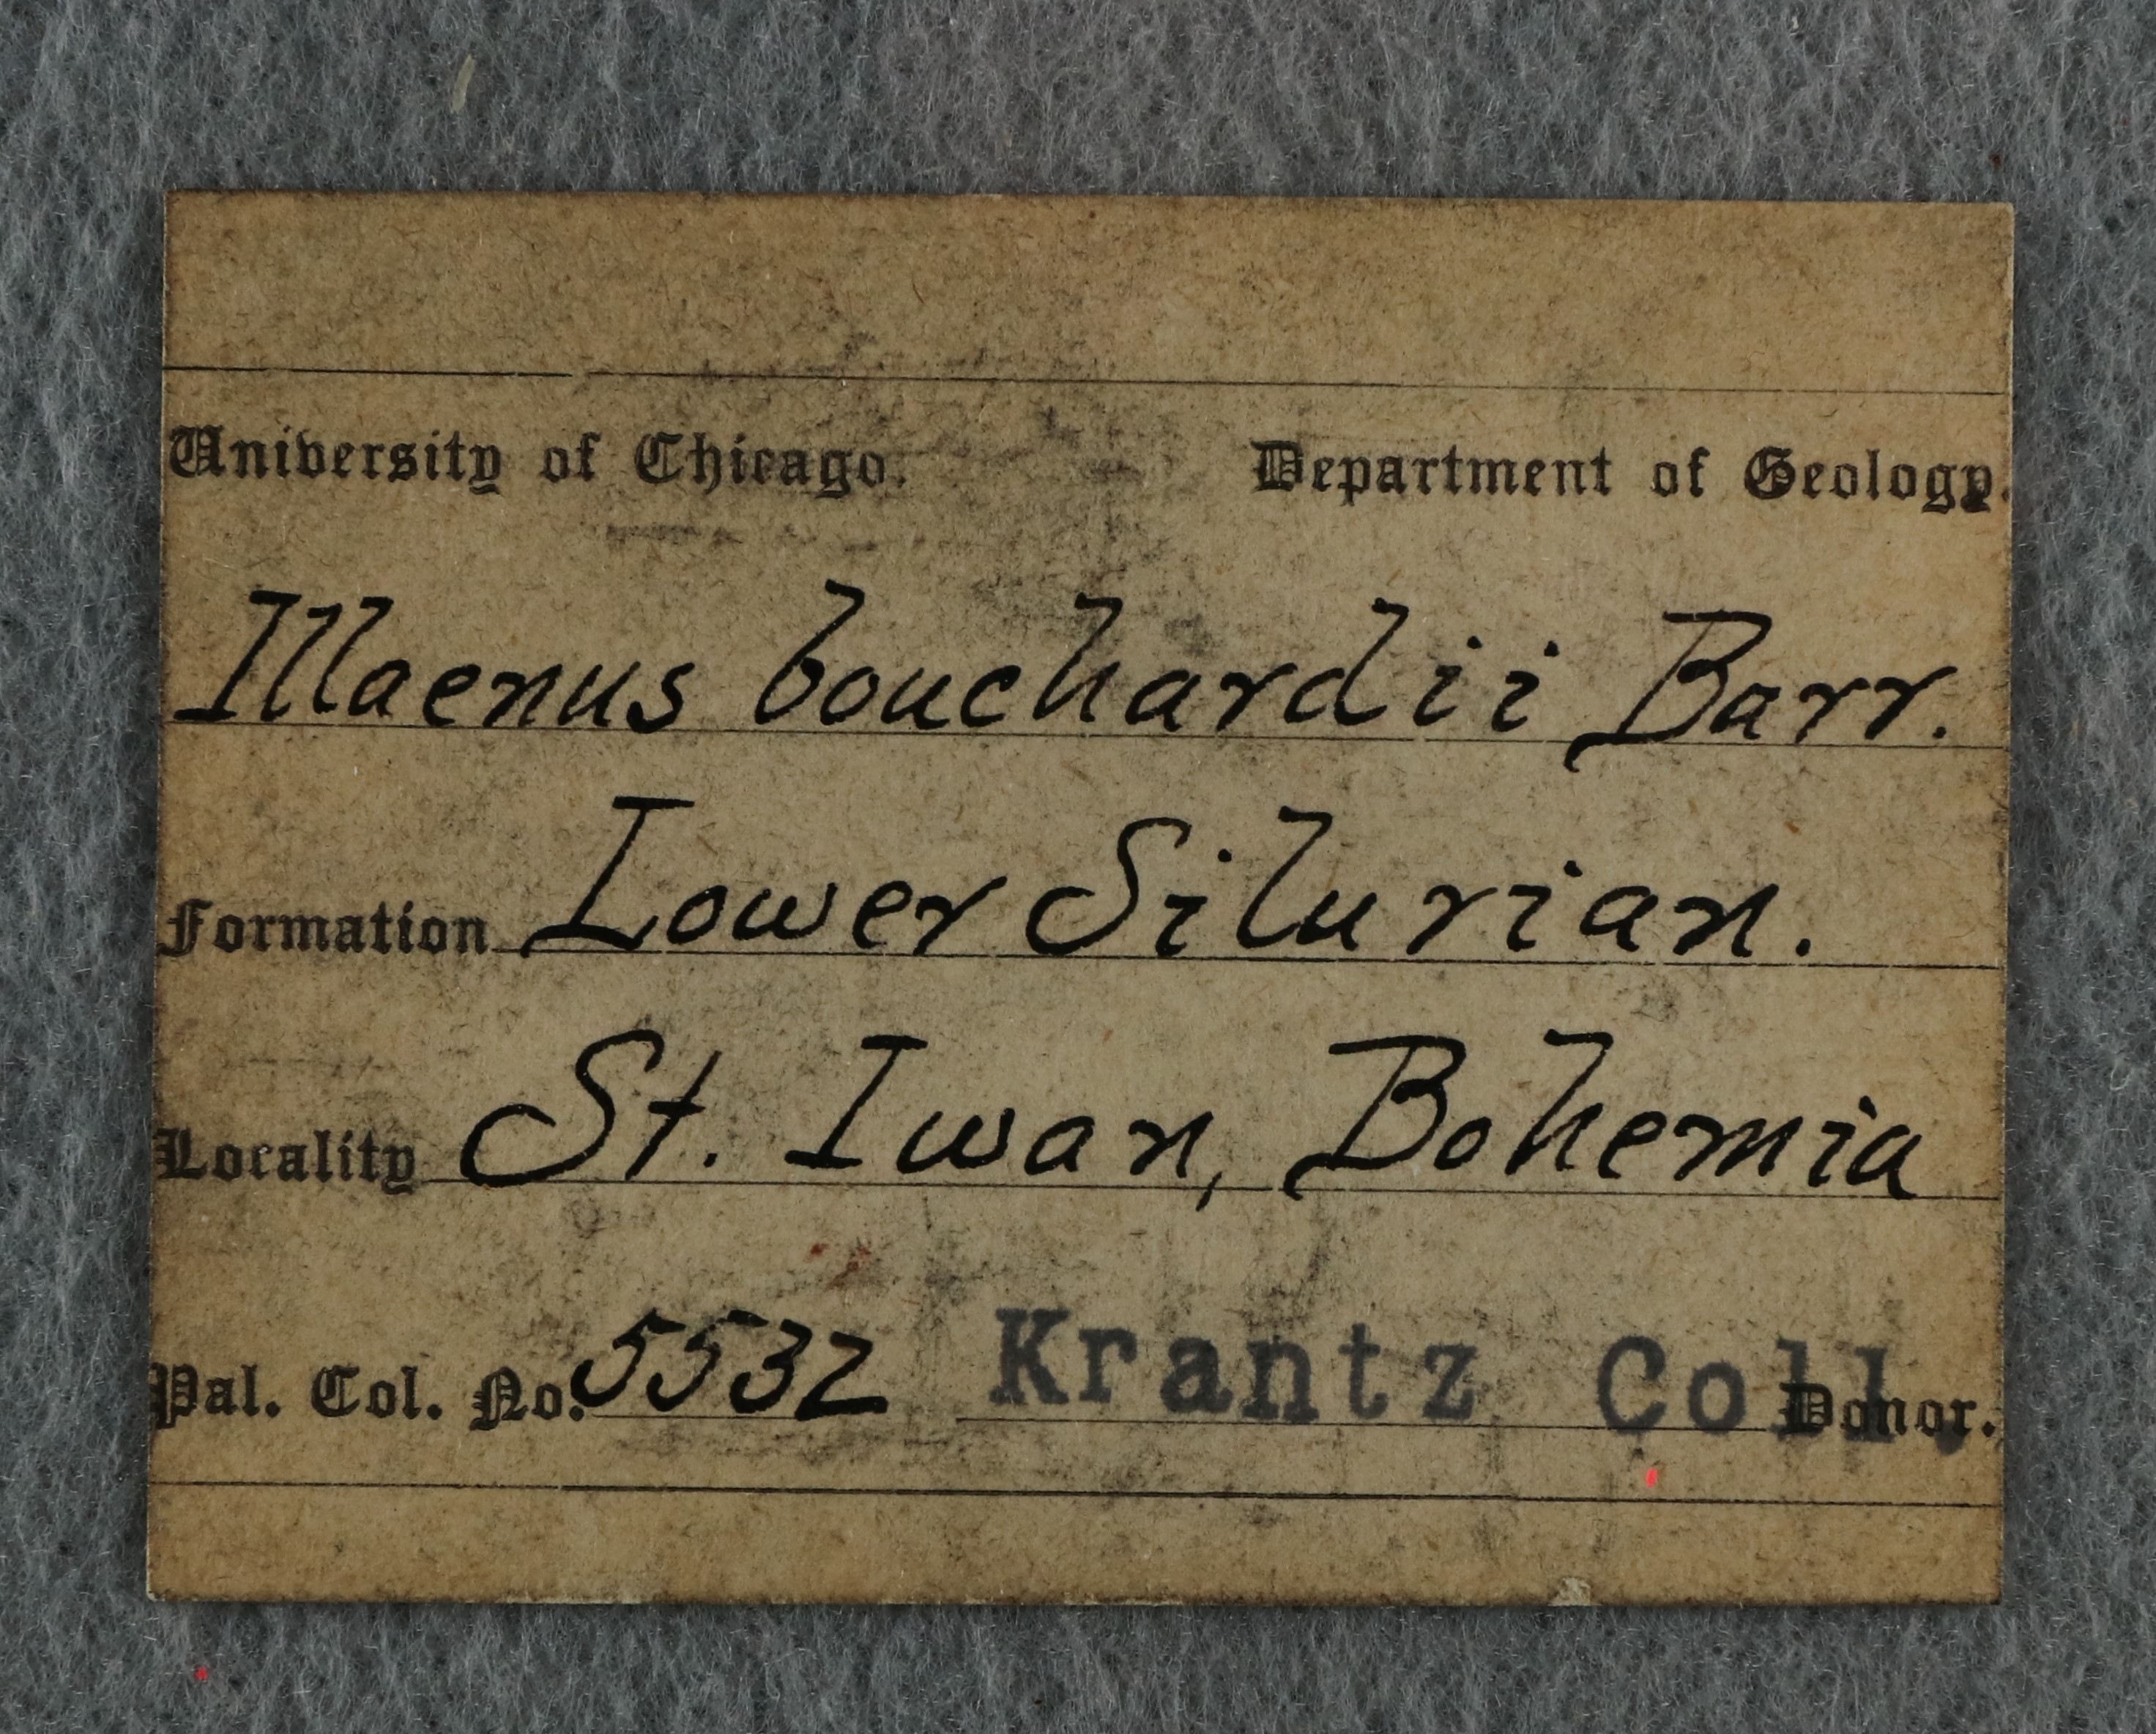 University of Chicago. Department of Geology.
Illaenus bouchardii Barr.
Formation Lower Silurian.
Locality St. Iwan, Bohemia
Pal. Col. No. 5532 Krantz Coll. Donor.